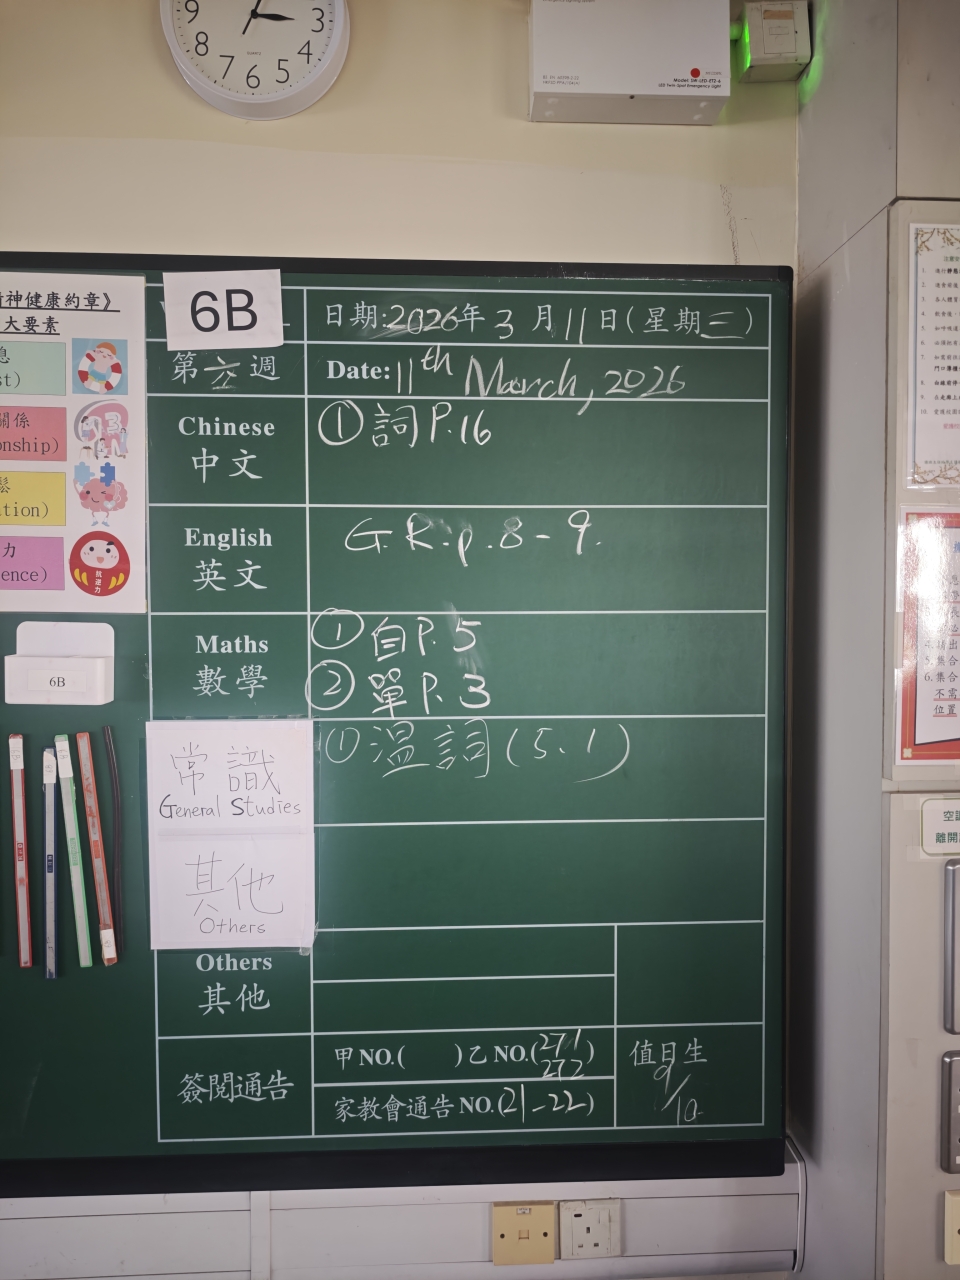 9
3
8
4
7
6
5
QUARTZ
LED Twin Spot Emergency Light
精神健康約章》
大要素
息
st)
關係
onship)
鬆
ation)
力
ence)
抗逆力
6B
6B
日期:2026年3月11日(星期三)
第六週
Date: 11th March, 2026
Chinese
中文
① 詞P.16
English
英文
G.R.: p.8-9.
Maths
數學
① 自P.5
② 單P.3
常識
General Studies
① 溫詞(5.1)
其他
Others
Others
其他
簽閱通告
甲NO.( )乙NO.(271
272)
家教會通告NO.(21-22)
值日生
9/10
空調
離開
不需
位置